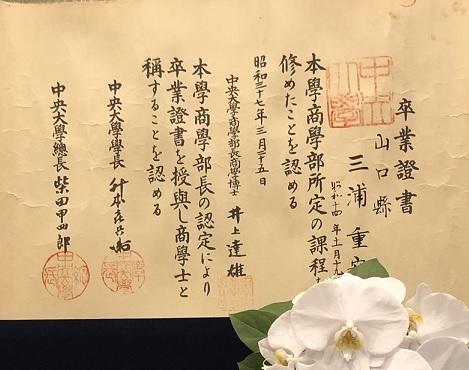 卒業證書
山口縣
三浦重
昭和十四年十月十九
本學商學部所定の課程を
修めたことを認める
昭和三十七年三月二十五日
中央大學商學部長商學博士 井上達雄
本學商學部長の認定により
卒業證書を授與し商學士と
稱することを認める
中央大學學長 升本喜兵衛
中央大學總長 柴田甲四郎